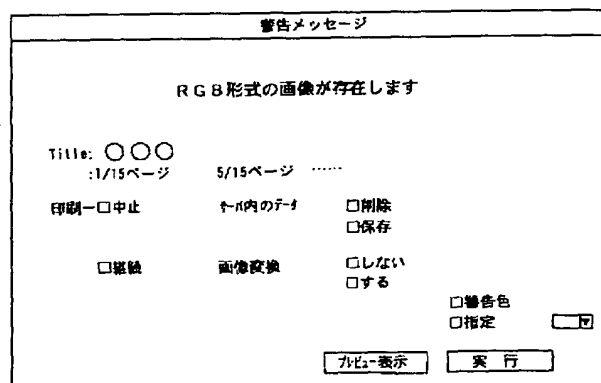 警告メッセージ
RGB形式の画像が存在します
Title: ○○○
:1/15ページ 5/15ページ ……
印刷ー□中止 サーバ内のデータ □削除
□保存
□継続 画像変換 □しない
□する
□警告色
□指定
プレビュー表示 実 行